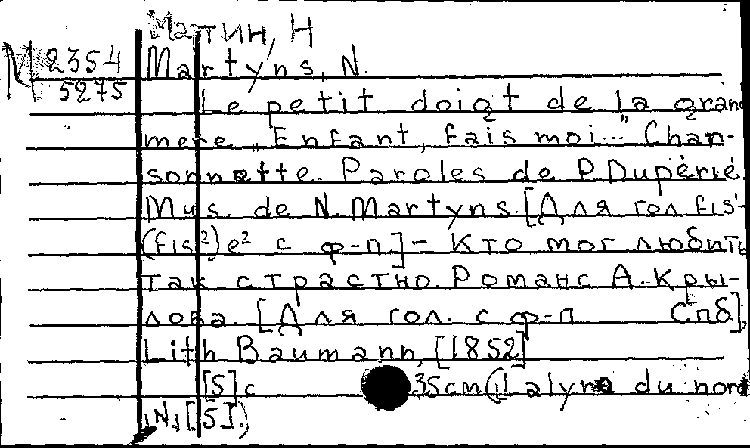 Мартин, Н
М 2354
5275
Martyns, N.
Le petit doigt de la gran
mere „Enfant, fais moi..." Chan-
sonnette. Paroles de P. Dupérié.
Mus. de N. Martyns. [Для гол fis¹-
(fis²) e² с ф-п] - Кто мог любить
так страстно. Романс А. Кры-
лова. [Для гол. с ф-п Спб],
Lith Baumann, [1852]
[5] с 35 cm (L'alyre du nord
N. [5].)